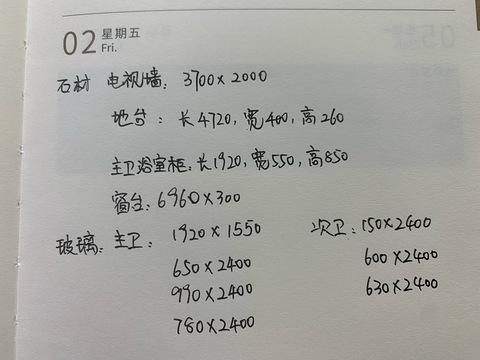 02 星期五
Fri.
石材 电视墙：3700×2000
地台：长4720，宽400，高260
主卫浴室柜：长1920，宽550，高850
窗台：6960×300
玻璃：主卫：1920×1550 次卫：150×2400
650×2400 600×2400
990×2400 630×2400
780×2400